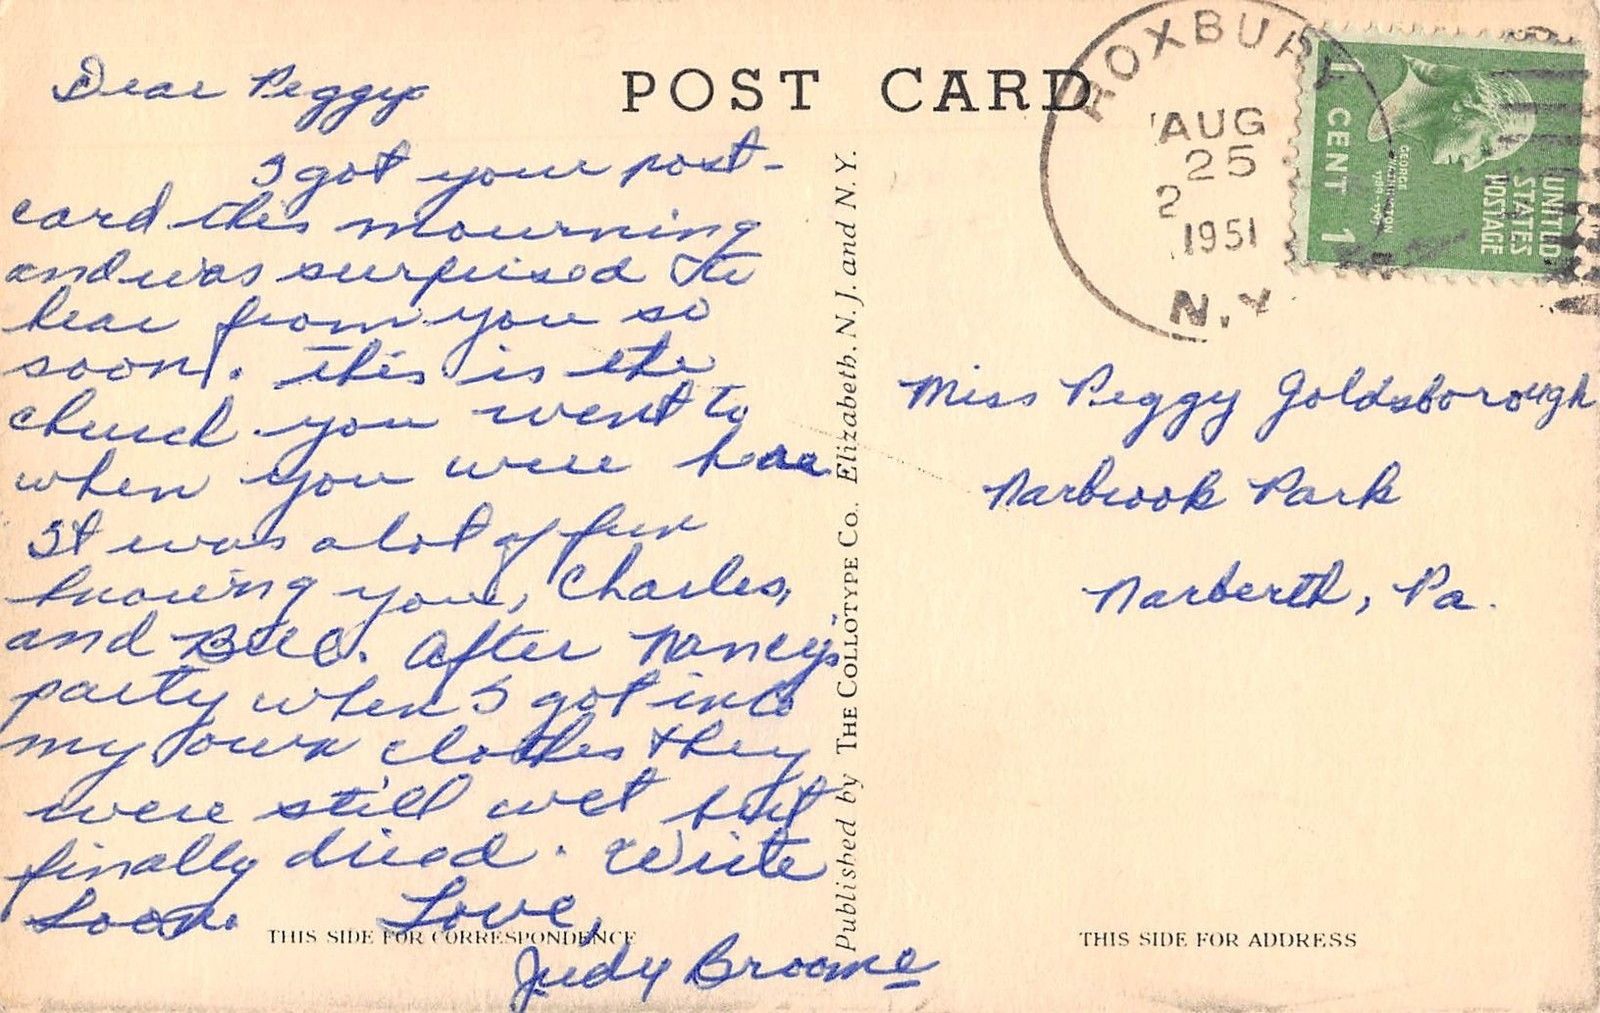 POST CARD
ROXBURY
AUG
25
2
1951
N.Y
1 CENT 1
GEORGE
WASHINGTON
UNITED
STATES
POSTAGE
Dear Peggy
I got your post-
card this mourning
and was surprised to
hear from you so
soon. This is the
church you went to
when you were here
It was a lot of fun
knowing you, Charles,
and Bill. After Nancy's
party when I got into
my own clothes they
were still wet but
finally dried. Write
Soon. Love,
Judy Broome
THIS SIDE FOR CORRESPONDENCE
Published by THE COLLOTYPE CO., Elizabeth, N. J. and N. Y.
Miss Peggy Goldsborough
Narbrook Park
Narberth, Pa.
THIS SIDE FOR ADDRESS